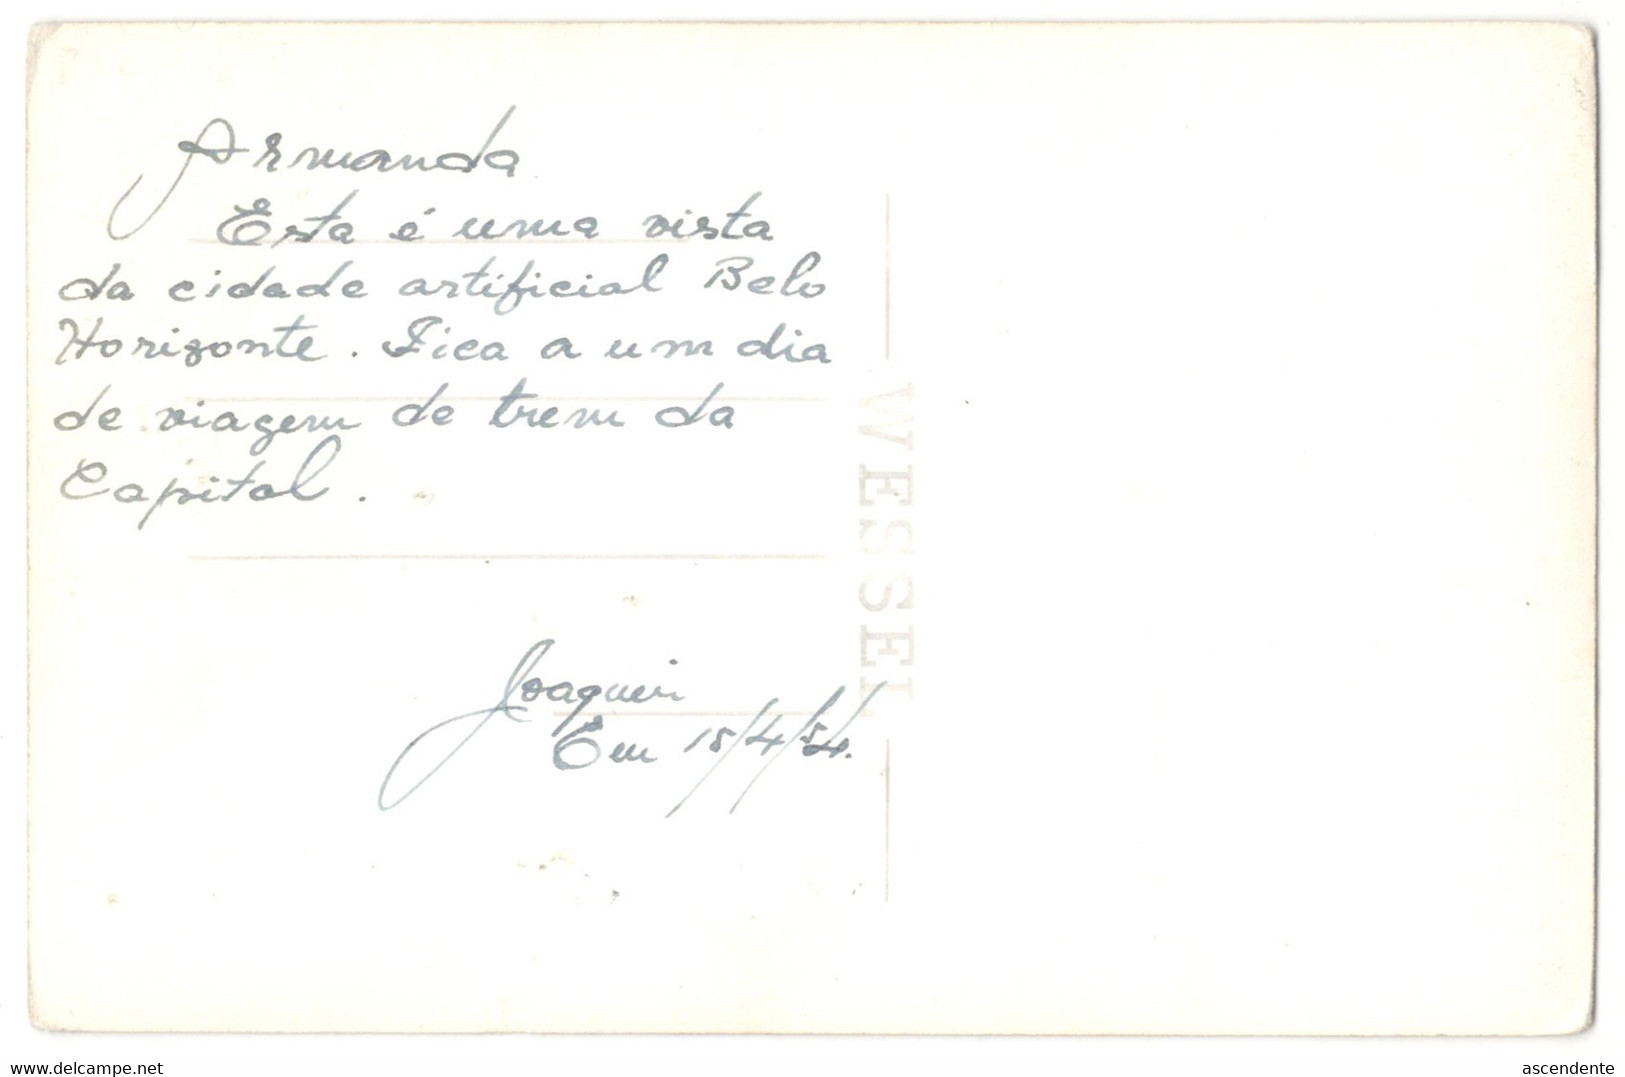 Armanda
Esta é uma vista
da cidade artificial Belo
Horizonte. Fica a um dia
de viagem de trem da
Capital.
Joaquim
Em 15/4/54.
WESSEL
www.delcampe.net
ascendente